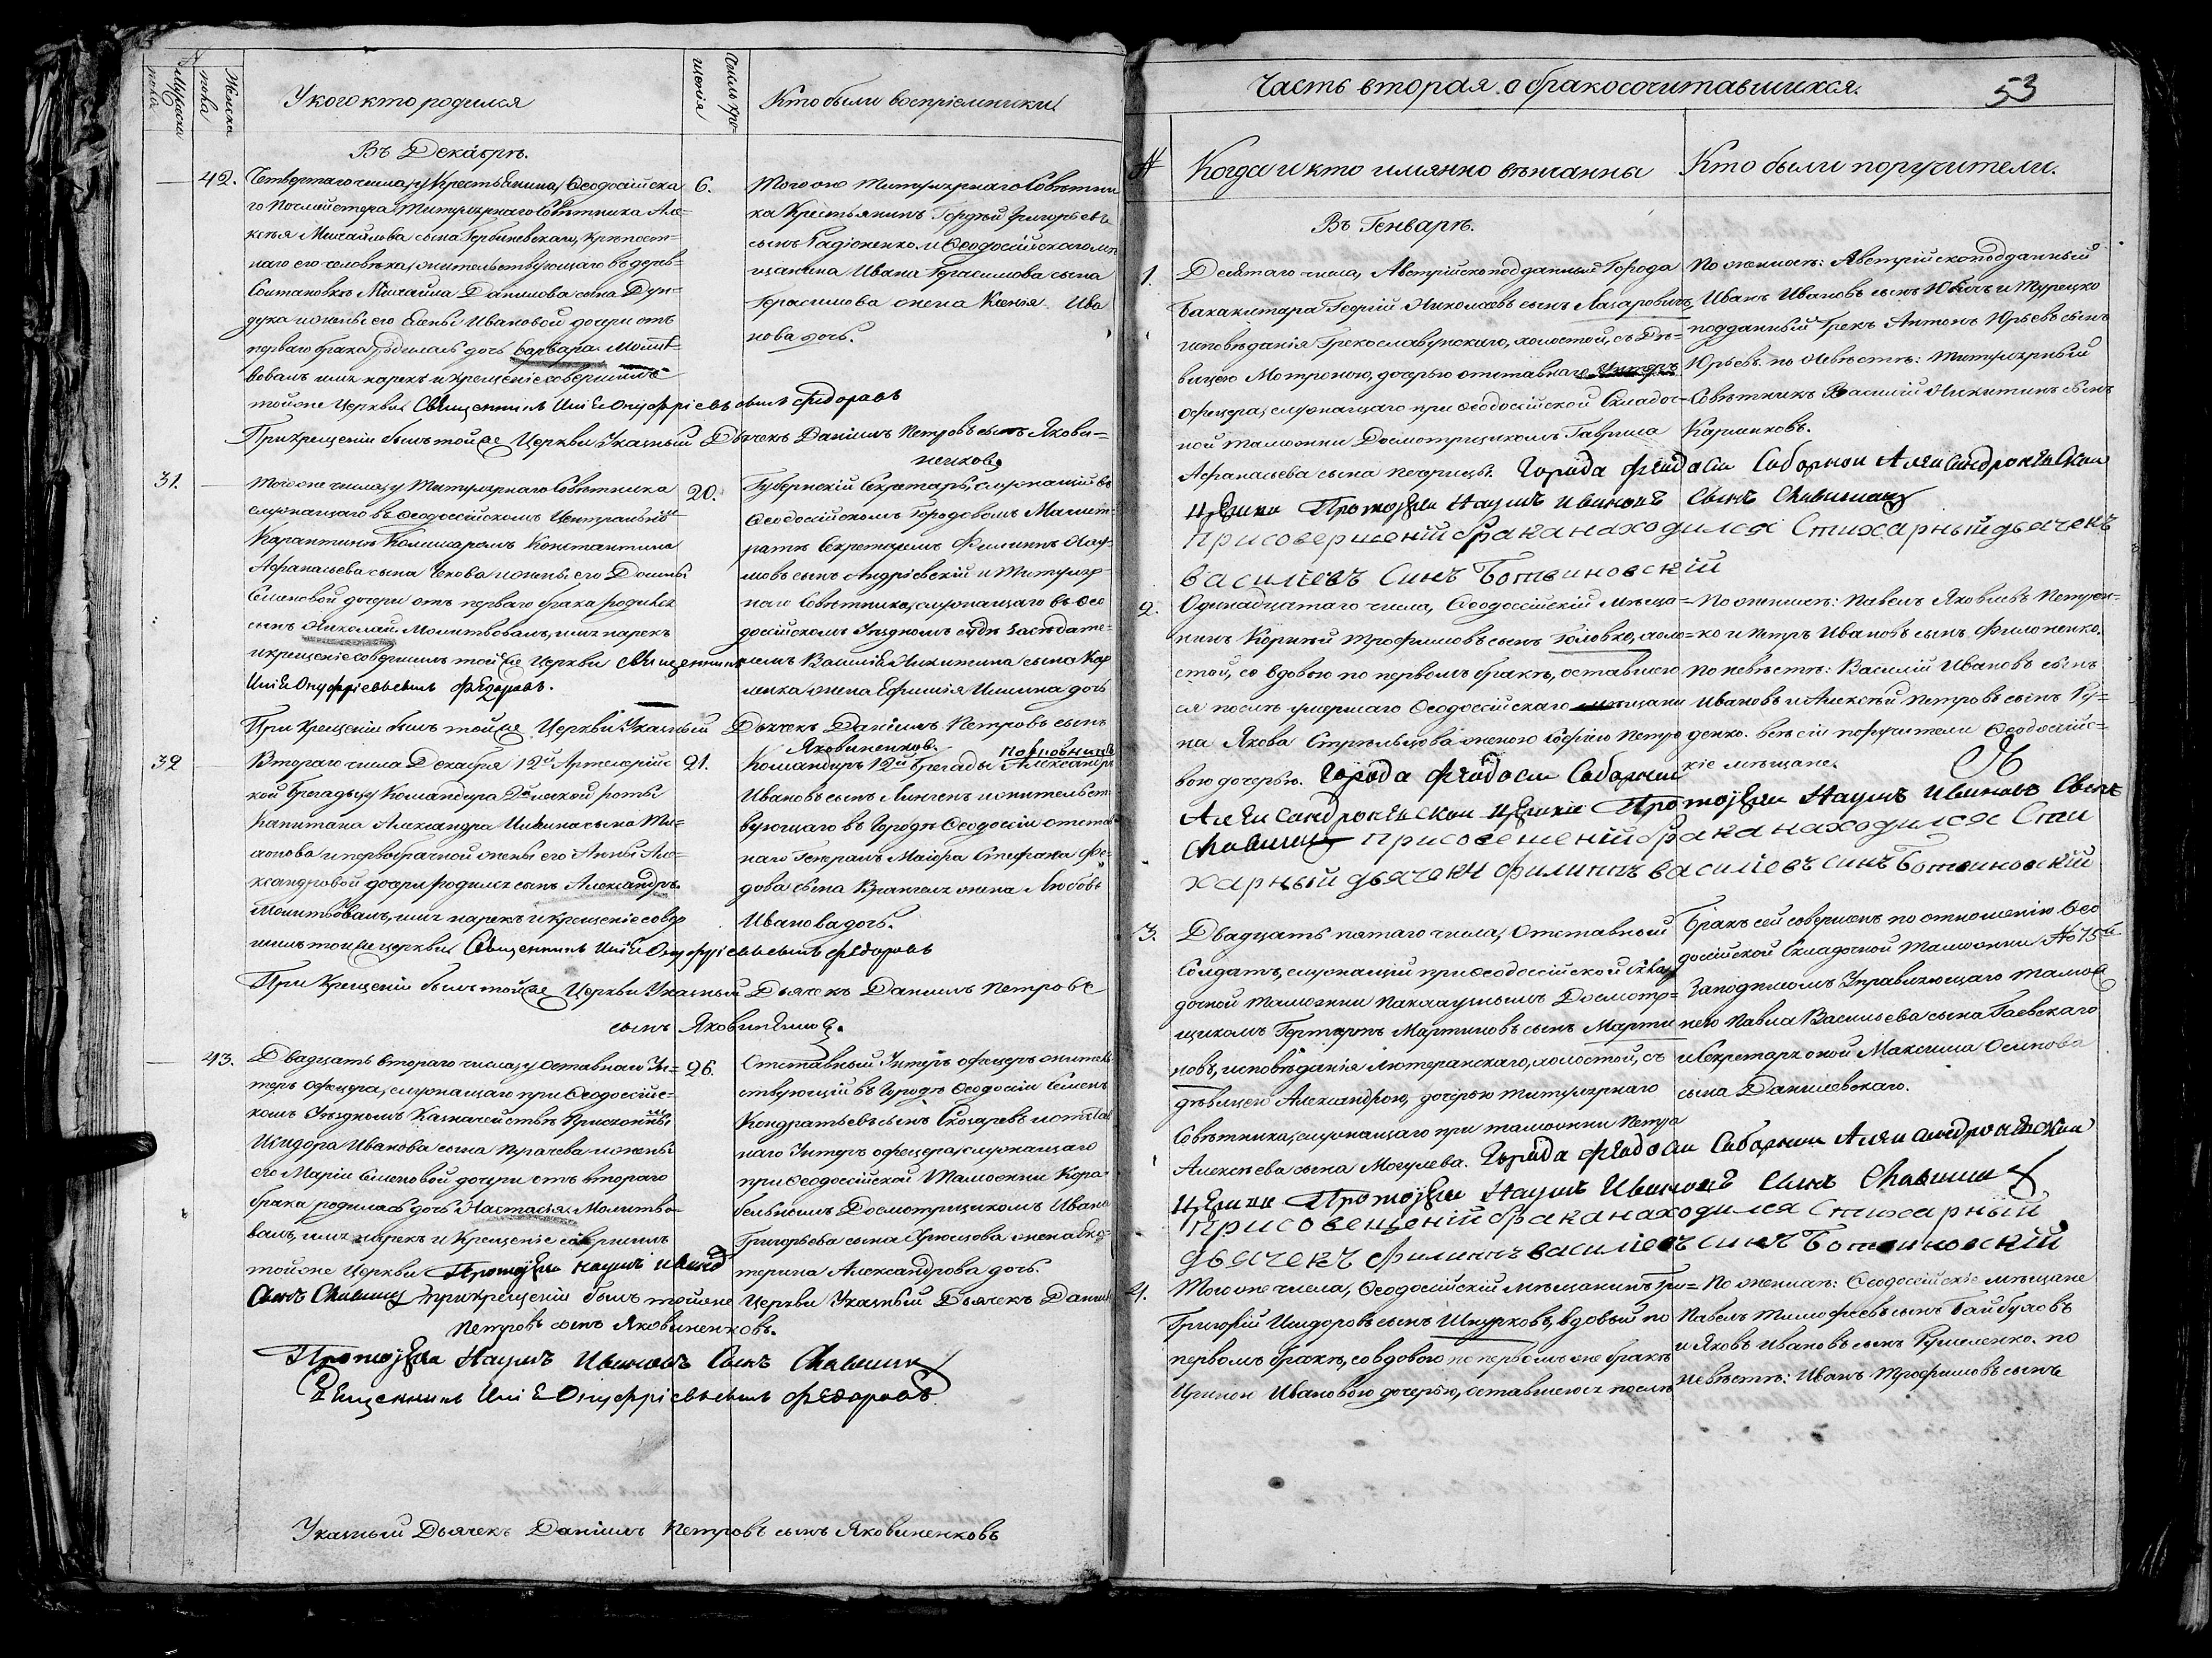 Мужска пола
Женска пола
У кого кто родился
Число крещенія
Кто были воспріемники
Въ Декабрѣ.
42.
Четвертаго числа, у Крестьянина, Ѳеодосійска
го Почмейстера Титулярнаго Совѣтника Але=
ксѣя Михайлова сына крѣпост=
наго его человѣка, жительствующаго въ дерев=
Михайла Данилова сына Дун=
дука и жены его Елены Ивановой дочери отъ
перваго брака родилась дочь Варвара. Молит=
вовалъ имя нарекъ и крещеніе совершилъ
тойже Церкви Священникъ Онуфріевъ сынъ Федоровъ
6.
Того же Титулярнаго Совѣтни
ка Крестьянинъ Гордѣй Григорьевъ
сынъ Радіоненко и Ѳеодосійскаго мѣ
щанина Ивана Герасимова сына
Герасимова жена Ксенія Ива
нова дочь.
При крещеніи былъ тойже Церкви Указный Дьячекъ Даніилъ Петровъ сынъ Якови=
ненковъ
31.
Того же числа, у Титулярнаго Совѣтника
служащаго въ Ѳеодосійскомъ Центральномъ
Карантинѣ Комисаромъ Константина
Афанасьева сына Чекова и жены его Домны
Семеновой дочери отъ перваго брака родился
сынъ Николай. Молитвовалъ, имя нарекъ
и крещеніе совершилъ тойже Церкви Священникъ
Онуфріевъ сынъ Федоровъ.
20.
Губернскій Секретарь, служащій въ
Ѳеодосійскомъ Городовомъ Магист=
ратѣ Секретаремъ Филиппъ Нау=
мовъ сынъ Андріевскій и Титуляр=
наго Совѣтника, служащаго въ Ѳео
досійскомъ Уѣздномъ судѣ Засѣдате=
лемъ Василія Никитина сына Кар
жена Ефимія Ильина дочь
При Крещеніи былъ тойже Церкви Указный Дьячекъ Даніилъ Петровъ сынъ
Яковиненковъ.
32
Втораго числа Декабря 12й Артилерійс
кой бригады, у Командира роты
Капитана Александра сына Ми=
и первобрачной жены его Анны Але=
ксандровой дочери родился сынъ Александръ.
Молитвовалъ, имя нарекъ и крещеніе совер
шилъ тойже церкви Священникъ Онуфріевъ сынъ Федоровъ
21.
Полковникъ
Командиръ 12й бригады Александръ
Ивановъ сынъ и жительст
вующаго въ Городѣ Ѳеодосіи отстав
наго Генералъ Маіора Стефана Фе=
дова сына Врангеля жена Любовь
Иванова дочь.
При Крещеніи былъ тойже Церкви Указный Дьячекъ Даніилъ Петровъ
сынъ Яковиненковъ.
43.
Двадцать втораго числа, у отставнаго Ун=
теръ Офицера, служащаго при Ѳеодосійс=
комъ Уѣздномъ Казначействѣ
Исидора Иванова сына и жены
его Маріи Семеновой дочери отъ втораго
брака родилась дочь Настасія. Молитво=
валъ, имя нарекъ и Крещеніе совершилъ
тойже Церкви Протоіерей Наумъ Ивановъ
Сынъ При крещеніи былъ тойже Церкви Указный Дьячекъ Даніилъ
Петровъ сынъ Яковиненковъ.
26.
Отставный Унтеръ офицеръ житель
ствующій въ Городѣ Ѳеодосіи Семенъ
Кондратьевъ сынъ и отстав
наго Унтеръ офицера, служащаго
при Ѳеодосійской Таможни Кора=
бельнымъ Досмотрщикомъ Ивана
Григорьева сына жена Ека=
терина Александрова дочь.
Протоіерей Наумъ Ивановъ Сынъ
Священникъ Онуфріевъ сынъ Федоровъ.
Указный Дьячекъ Даніилъ Петровъ сынъ Яковиненковъ
Часть вторая о бракосочитавшихся.
53
№
Когда и кто имянно вѣнчанны
Кто были поручители.
Въ Генварѣ.
1.
Десятаго числа, Австрійскоподданный Города
Георгій Николаевъ сынъ Лазаровичъ,
исповѣданія Грекославунскаго, холостой, съ Дѣ=
вицею Мотроною, дочерью отставнаго Унтеръ
офицера, служащаго при Ѳеодосійской Складоч=
ной таможни Досмотрщикомъ Гаврила
Афанасьева сына Города Феодосіи Соборной Александроневской
Церкви Протоіерей Наумъ Ивановъ Сынъ
При совершеній брака находился Стихарный дьячекъ
василіевъ Синъ Ботвиновскій
По женихѣ: Австрійскоподданный
Иванъ Ивановъ сынъ и Турецко
подданный Грекъ Антонъ Юрьевъ сынъ
Юрьевъ. по Невѣстѣ: Титулярный
Совѣтникъ Василій Никитинъ сынъ
2.
Одинадцатаго числа, Ѳеодосійскій мѣща=
нинъ Корнѣй Трофимовъ сынъ Головко, холо=
стой, со вдовою по первомъ бракѣ, оставшею
ся послѣ умершаго Ѳеодосійскаго мѣщани
на Якова Стрѣльцова женою Софіею Петро
вою дочерью. Города Феодосіи Соборной
Александроневской Церкви Протоіерей Наумъ Ивановъ Сынъ
При совешеній брака находился Сти
харный дьячекъ филиппъ василіевъ синъ Ботвиновскій
По женихѣ: Павелъ Яковлевъ Петрен=
ко и Петръ Ивановъ сынъ Филоненко.
по невѣстѣ: Василій Ивановъ сынъ
Ивановъ и Алексѣй Петровъ сынъ
денко. всѣ сіи поручители Ѳеодосійс=
кіе мѣщане.
3.
Двадцать пятаго числа, Отставный
Солдатъ, служащій при Ѳеодосійской Скла
дочной таможни Пакгаузнымъ Досмотр=
щикомъ Мартиновъ сынъ Марти
новъ, исповѣданія Лютеранскаго, холостой, съ
дѣвицею Александрою, дочерью титулярнаго
Совѣтника, служащаго при таможни Петра
Алексѣева сына Могулева. Города Феодосіи Соборной Александроневской
Церкви Протоіерей Наумъ Ивановъ Сынъ
При совещеній брака находился Стихарный
дьячекъ филиппъ василіевъ синъ Ботвиновскій
Бракъ сей совершенъ по отношенію Ѳео
досійской Складочной таможни №
За подписомъ Управляющаго тамож
нею Павла Васильева сына Гаевскаго
и Секретаря оной Максима Осипова
сына Данилевскаго.
4.
Того же числа, Ѳеодосійскій мѣщанинъ Гри=
Григорій Исидоровъ сынъ Шнурковъ, вдовый по
первомъ бракѣ, со вдовою по первомъ же бракѣ
Ириною Ивановою дочерью, оставшеюся послѣ
По женихѣ: Ѳеодосійскіе мѣщане
Павелъ Тимофеевъ сынъ Байбузовъ
и Яковъ Ивановъ сынъ по
невѣстѣ: Иванъ Трофимовъ сынъ